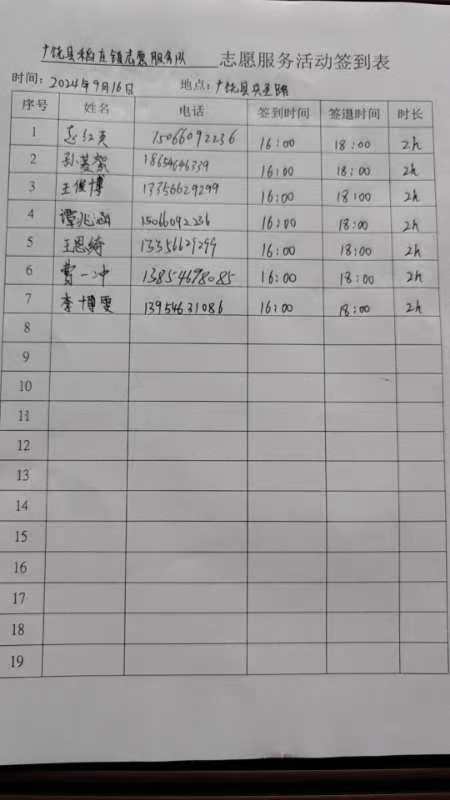 广饶县稻庄镇志愿服务队 志愿服务活动签到表
时间：2024年9月16日 地点：广饶县
序号 姓名 电话 签到时间 签退时间 时长
1 赵红英 15066092236 16:00 18:00 2h
2 孙 18654646339 16:00 18:00 2h
3 王俊博 13356629299 16:00 18:00 2h
4 谭兆涵 15066092236 16:00 18:00 2h
5 王恩绮 13356629299 16:00 18:00 2h
6 曹一冲 13854698085 16:00 18:00 2h
7 李博雯 13954631086 16:00 18:00 2h
8
9
10
11
12
13
14
15
16
17
18
19